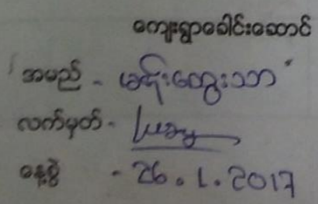 ကျေးရွာခေါင်းဆောင်
အမည် - ခင်ထွေးသာ
လက်မှတ် -
နေ့စွဲ - 26.1.2017